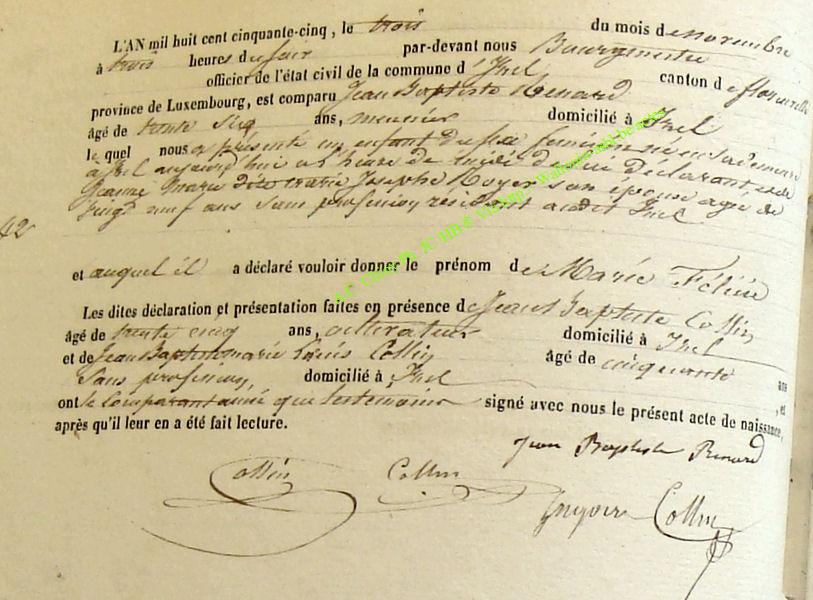 L'AN mil huit cent cinquante-cinq, le trois du mois de novembre
à trois heures du soir par-devant nous Bourgmestre
officier de l'état civil de la commune d'Izel canton de florenville
province de Luxembourg, est comparu Jean Baptiste Renard
âgé de trente six ans, meunier domicilié à Izel
le quel nous a présenté un enfant du sexe féminin né en sa demeure
à Izel aujourd'hui à heure de midi de lui Déclarant et de
Jeanne Marie dite Marie Josephe Royer son épouse agée de
Vingt neuf ans sans profession, résidant audit Izel
42
et auquel il a déclaré vouloir donner le prénom de Marie
Les dites déclaration et présentation faites en présence de Jean Baptiste Collin
âgé de trente cinq ans, cultivateur domicilié à Izel
et de Jean Baptiste marie Louis Collin âgé de cinquante ans
Sans profession, domicilié à Izel , et
ont le Comparant ainsi que les temoins signé avec nous le présent acte de naissance,
après qu'il leur en a été fait lecture.
Jean Baptiste Renard
Collin Collin
Collin